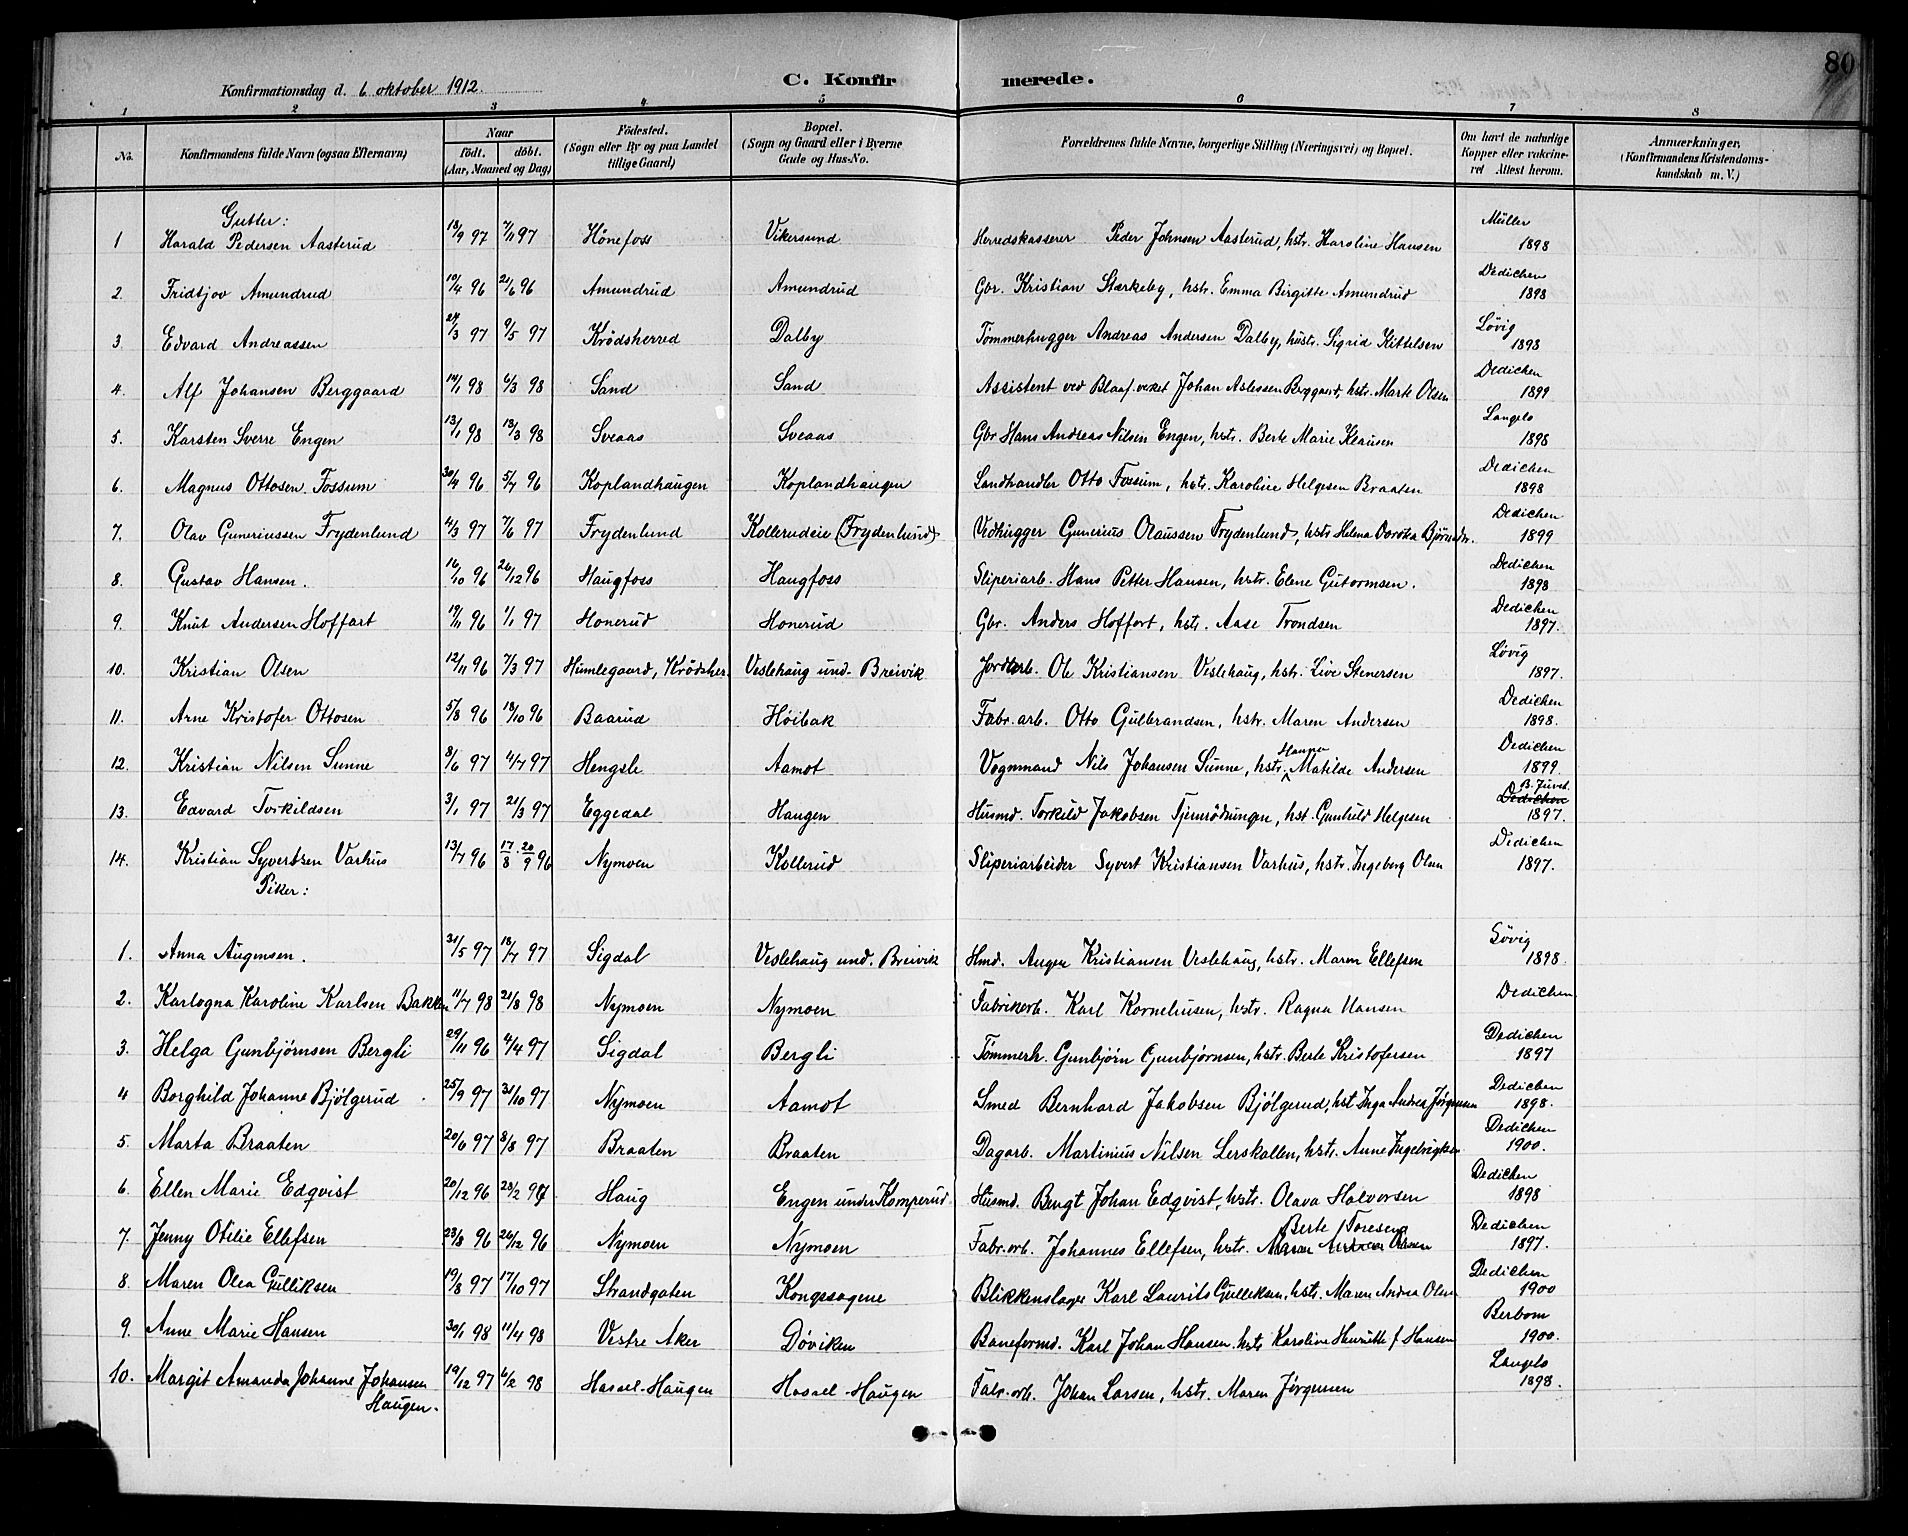 80
Konfirmationsdag d. 6 oktober 1912.
C. Konfirmerede.
1 2 3 4 5 6 7 8
No.
Konfirmandens fulde Navn (ogsaa Efternavn)
Naar
födt. döbt.
(Aar, Maaned og Dag)
Födested.
(Sogn eller By og paa Landet
tillige Gaard)
Bopæl.
(Sogn og Gaard eller i Byerne
Gade og Hus-No.
Forældrenes fulde Navne, borgerlige Stilling (Næringsvei) og Bopæl.
Om havt de naturlige
Kopper eller vakcine-
ret Attest herom.
Anmærkninger,
(Konfirmandens Kristendoms-
kundskab m. V.)
Gutter:
1 Harald Pedersen Aasterud 18/9 97 7/11 97 Hönefoss Vikersund Herredskasserer Peder Johnsen Aasterud, hstr. Karoline Hansen Müller 1898
2. Fridtjov Amundrud 10/4 96 21/6 96 Amundrud Amundrud Gbr. Kristian Stærkeby, hstr. Emma Birgitte Amundrud Dedichen 1898
3. Edvard Andreassen 24/3 97 9/5 97 Krödsherred Dalby Tömmerhugger Andreas Andersen Dalby, hustr. Sigrid Kittelsen Lövig 1898
4. Alf Johansen Berggaard 14/1 98 6/3 98 Sand Sand Assistent ved Blaaf.verket Johan Aslessen Berggaard, hstr. Marte Olsen Dedichen 1899
5. Karsten Sverre Engen 13/1 98 13/3 98 Sveaas Sveaas Gbr Hans Andreas Nilsen Engen, hstr. Berte Marie Klausen Langelo 1898
6. Magnus Ottosen Fossum 30/4 96 5/7 96 Koplandhaugen Koplandhaugen Landhandler Otto Fossum, hstr. Karoline Helgesen Braaten Dedichen 1898
7. Olav Guneriussen Frydenlund 4/3 97 7/6 97 Frydenlund Kollerudeie (Frydenlund) Vedhugger Gunerius Olaussen Frydenlund, hstr Helena Dorotea Dedichen 1899
8. Gustav Hansen. 16/10 96 26/12 96 Haugfoss Haugfoss Sliperiarb. Hans Petter Hansen, hstr. Elene Gutormsen. Dedichen 1898
9. Knut Andersen Hoffart 19/11 96 1/1 97 Honerud Honerud Gbr. Anders Hoffort, hstr. Aase Trondsen Dedichen 1897.
10. Kristian Olsen 12/11 96 7/3 97 Humlegaard, Krödsher. Veslehaug und. Breivik Jordarb. Ole Kristiansen Veslehaug, hstr. Live Stenersen Lövig 1897.
11. Arne Kristofer Ottosen 5/8 96 18/10 96 Baarud Höibak Fabr. arb. Otto Gulbrandsen, hstr. Maren Andersen Dedichen 1898.
12. Kristian Nilsen Sunne 8/6 97 4/7 97 Hengsle Aamot Vognmand Nils Johansen Sunne, hstr. Hanna Matilde Andersen Dedichen 1899.
13. Edvard Torkildsen 3/1 97 21/3 97 Eggedal Haugen Husmd. Torkild Jakobsen hst. Gunhild Helgesen B. Juvet. Dedichen 1897.
14. Kristian Syvertsen Varhus 13/7 96 17/8 - 20/9 96 Nymoen Kollerud Sliperiarbeider Syvert Kristiansen Varhus, hstr. Ingeborg Olsen Dedichen 1897.
Piker:
1. Anna Augensen. 31/5 97 18/7 97 Sigdal Veslehaug und. Breivik Hmd. Augen Kristiansen Veslehaug, hstr. Maren Ellefsen Lövig 1898.
2. Karlogna Karoline Karlsen Bakken 11/7 98 21/8 98 Nymoen Nymoen Fabrikarb. Karl Korneliusen, hstr. Ragna Hansen Dedichen.
3. Helga Gunbjørnsen Bergli 29/11 96 4/4 97 Sigdal Bergli Tömmerh. Gunbjörn Gunbjørnsen, hstr. Berte Kristofersen Dedichen 1897
4 Borghild Johanne Bjölgerud 25/9 97 31/10 97 Nymoen Aamot Smed Bernhard Jakobsen Bjölgerud, hst Inga Andrea Jörgensen Dedichen 1898.
5. Marta Braaten 20/6 97 8/8 97 Braaten Braaten Dagarb. Martinius Nilsen Lerskallen, hstr. Anne Ingebrigtsen Dedichen 1900.
6. Ellen Marie Edqvist 20/12 96 28/2 97 Haug Engen under Komperud Husmd. Bengt Johan Edqvist, hstr. Olava Halvorsen Dedichen 1898
7. Jenny Otilie Ellefsen 23/8 96 26/12 96 Nymoen Nymoen Fabr. arb. Johannes Ellefsen, hstr. Berte Toresen Dedichen 1897.
8. Maren Olea Gulliksen 19/8 97 17/10 97 Strandgaten Kongssagene Blikkenslager Karl Laurits Gulliksen, hstr. Maren Andrea Olsen Dedichen 1900
9. Anne Marie Hansen 30/1 98 11/4 98 Vestre Aker Döviken Baneformd. Karl Johan Hansen, hstr Karoline Henriette f Hansen Berbom 1900.
10. Margit Amanda Johanne Johansen 19/12 97 6/2 98 Hassel-Haugen Hassel-Haugen Fabr. arb. Johan Larsen, hstr. Maren Jörgensen Langelo 1898.
Haugen.